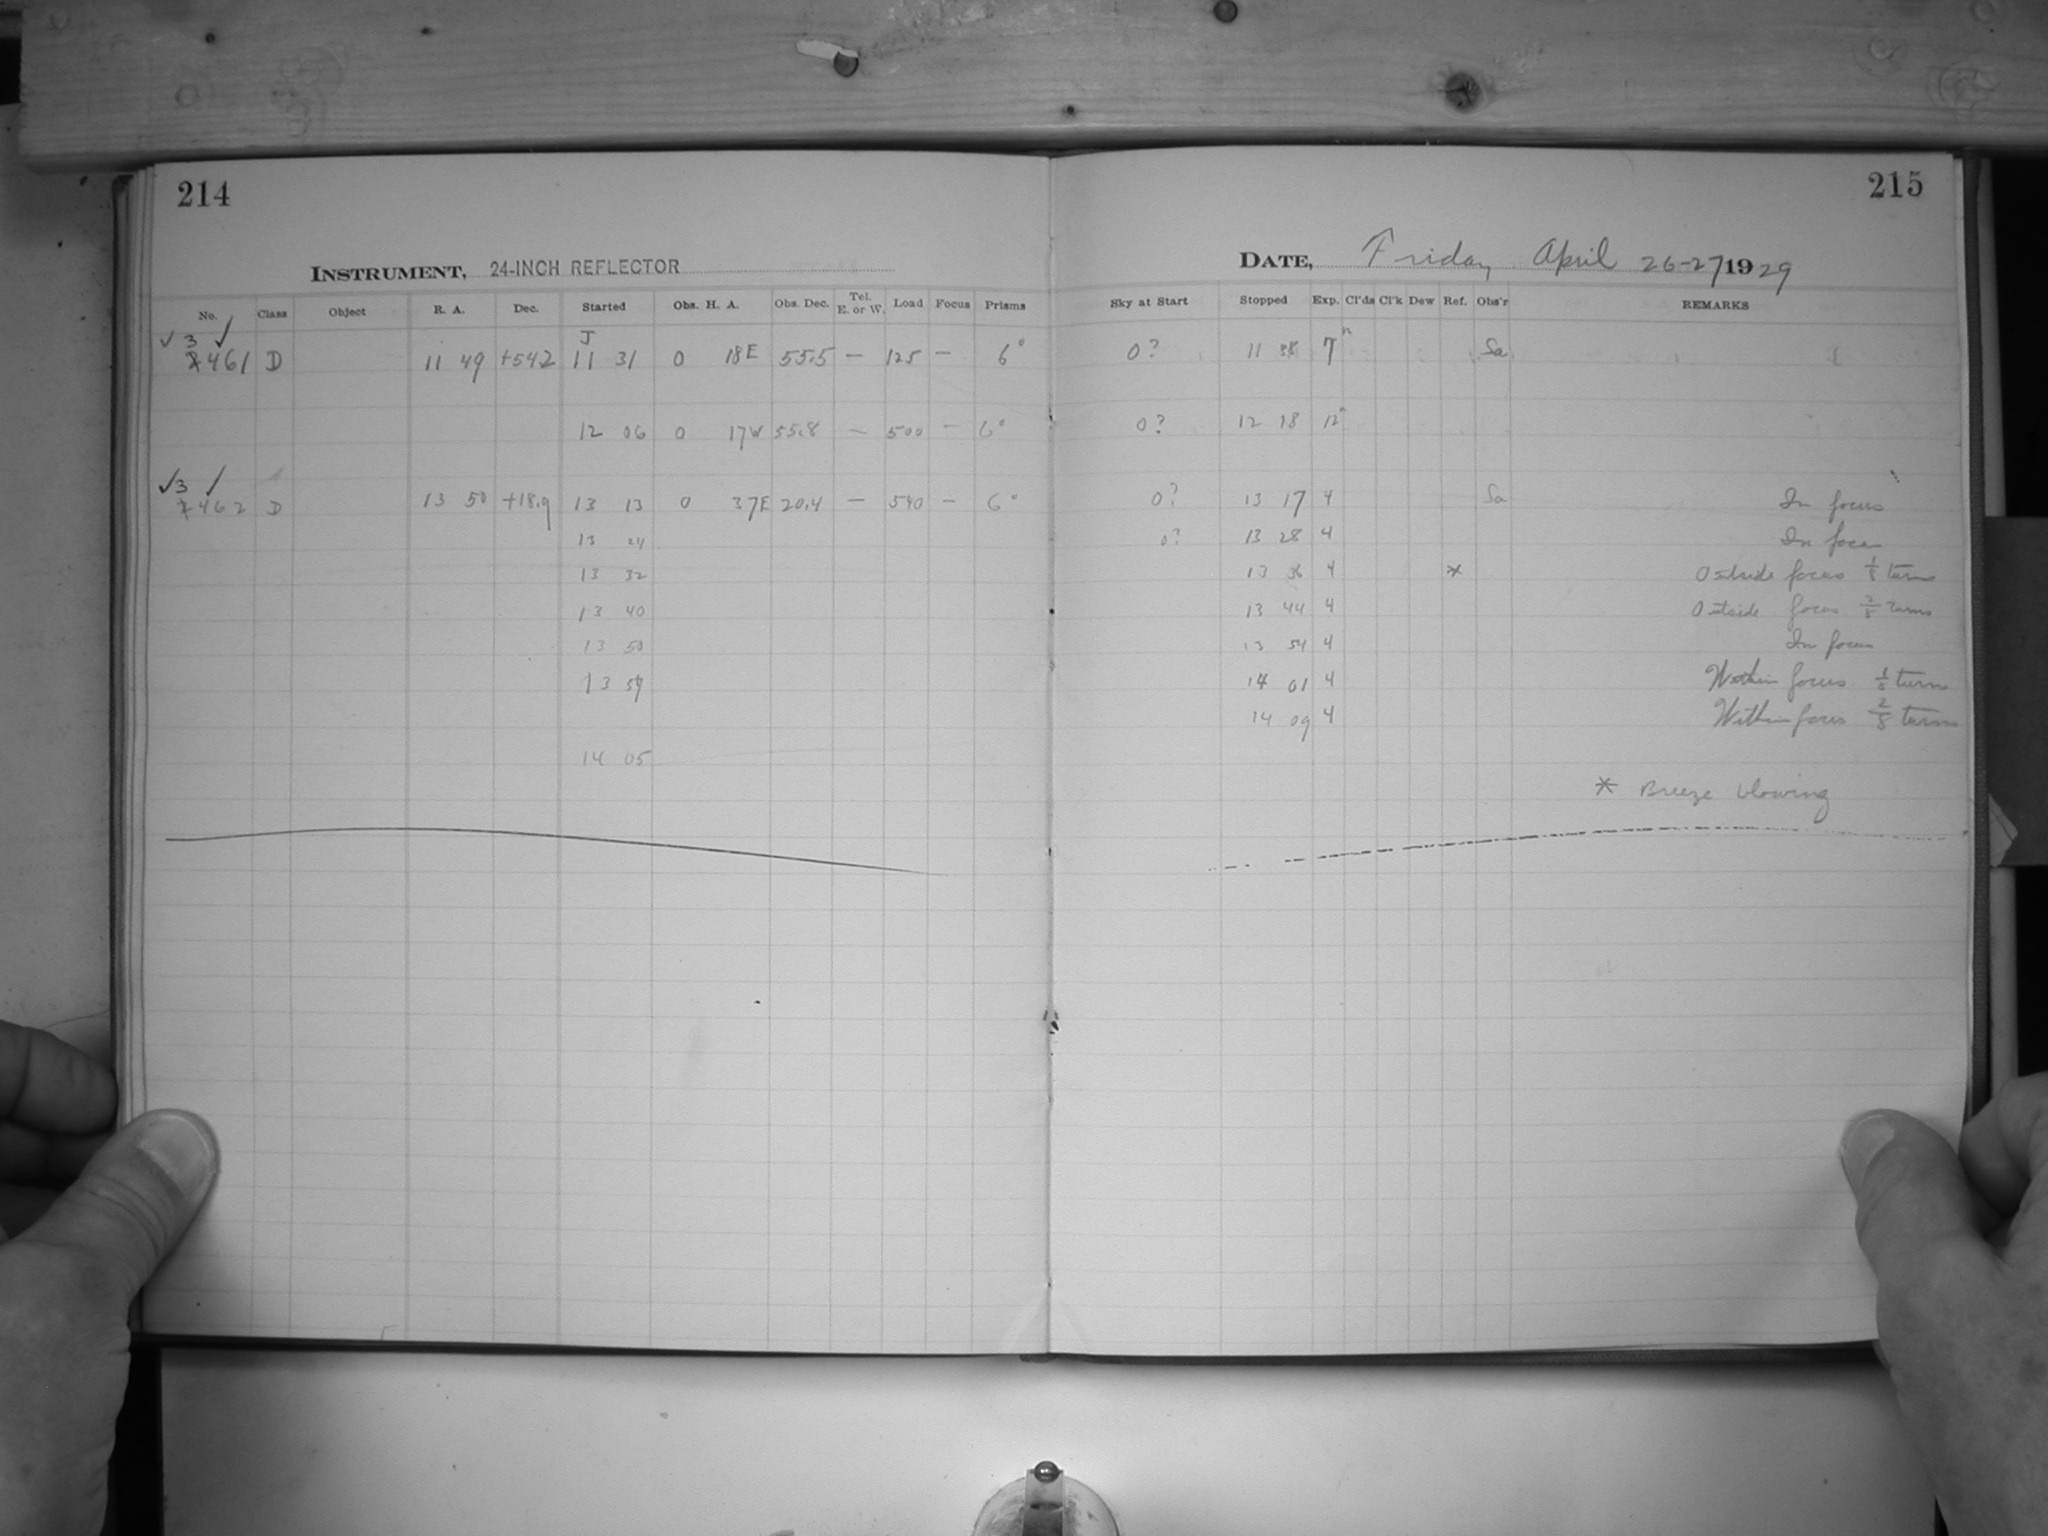 214
INSTRUMENT, 24-INCH REFLECTOR
No. Class Object R. A. Dec. Started Obs. H. A. Obs. Dec. Tel. E. or W. Load Focus Prisms
J
✓ 3 ✓
461 D 11 49 +54.2 11 31 0 18E 55.5 — 125 — 6°
12 06 0 17W 55.8 — 500 — 6°
✓3 ✓
462 D 13 50 +18.9 13 13 0 37E 20.4 — 540 — 6°
13 24
13 32
13 40
13 50
13 57
14 05
215
DATE, Friday April 26-27 1929
Sky at Start Stopped Exp. Cl'ds Cl'k Dew Ref. Obs'r REMARKS
0? 11 38 7m Sa
0? 12 18 12m
0? 13 17 4 Sa In focus
0? 13 28 4 In focus
13 36 4 * Outside focus 1/8 turns
13 44 4 Outside focus 2/8 turns
13 54 4 In focus
14 01 4 Within focus 1/8 turn
14 09 4 Within focus 2/8 turns
* Breeze blowing